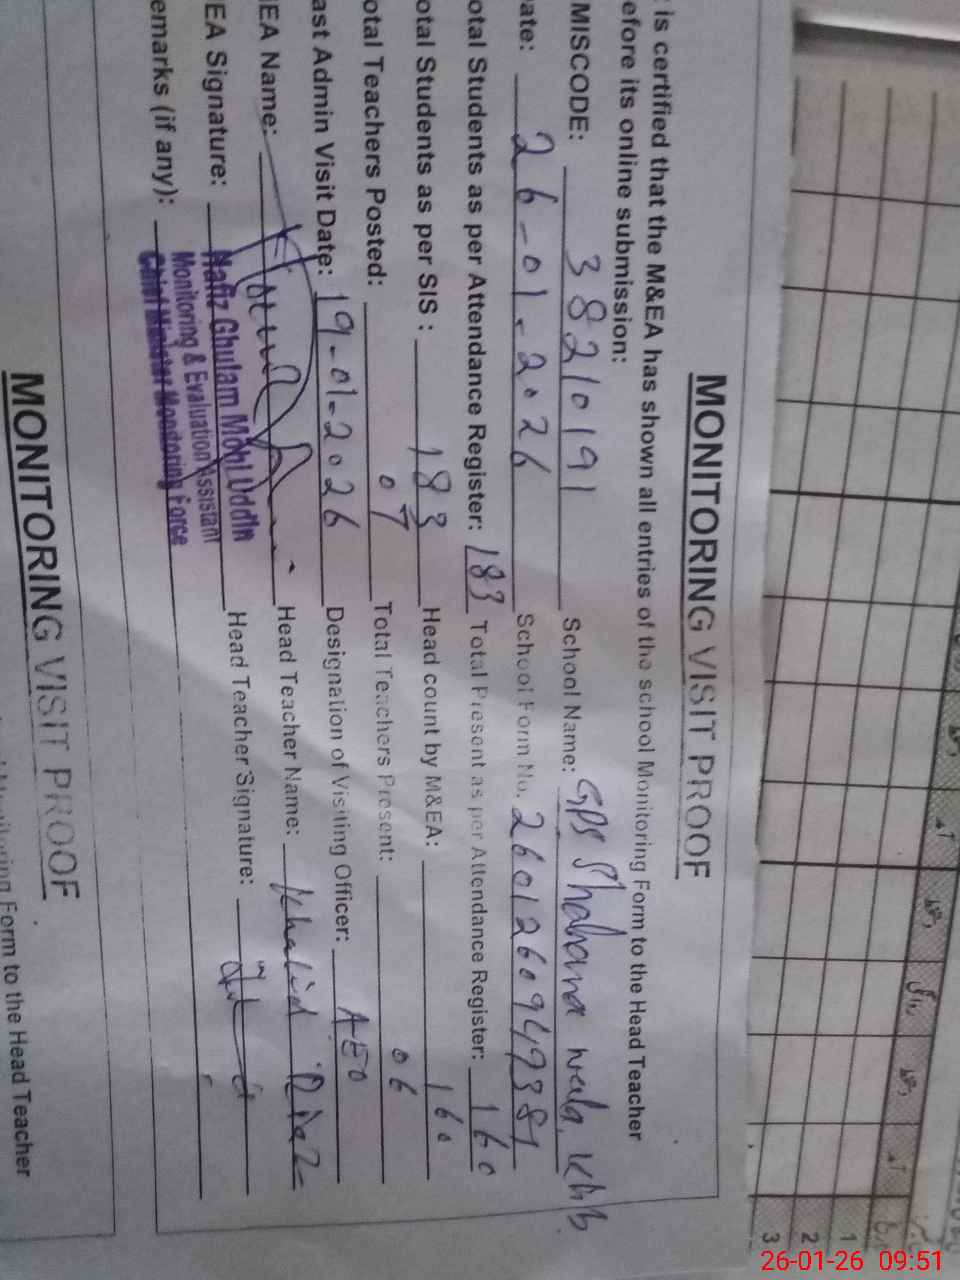 MONITORING VISIT PROOF
is certified that the M&EA has shown all entries of the school Monitoring Form to the Head Teacher
efore its online submission:
MISCODE: 38210191 School Name: GPS Shahana wala KhB
ate: 26-01-2026 School Form No. 26012609479381
otal Students as per Attendance Register: 183 Total Present as per Attendance Register: 160
otal Students as per SIS: 183 Head count by M&EA: 160
otal Teachers Posted: 07 Total Teachers Present: 06
ast Admin Visit Date: 19-01-2026 Designation of Visiting Officer: AEO
EA Name: Head Teacher Name: Khalid Riaz
EA Signature: Head Teacher Signature:
emarks (if any):
Hafiz Ghulam Mohi Uddin
Monitoring & Evaluation Assistant
Chief Minister Monitoring Force
MONITORING VISIT PROOF
Form to the Head Teacher
1
2
3
26-01-26 09:51